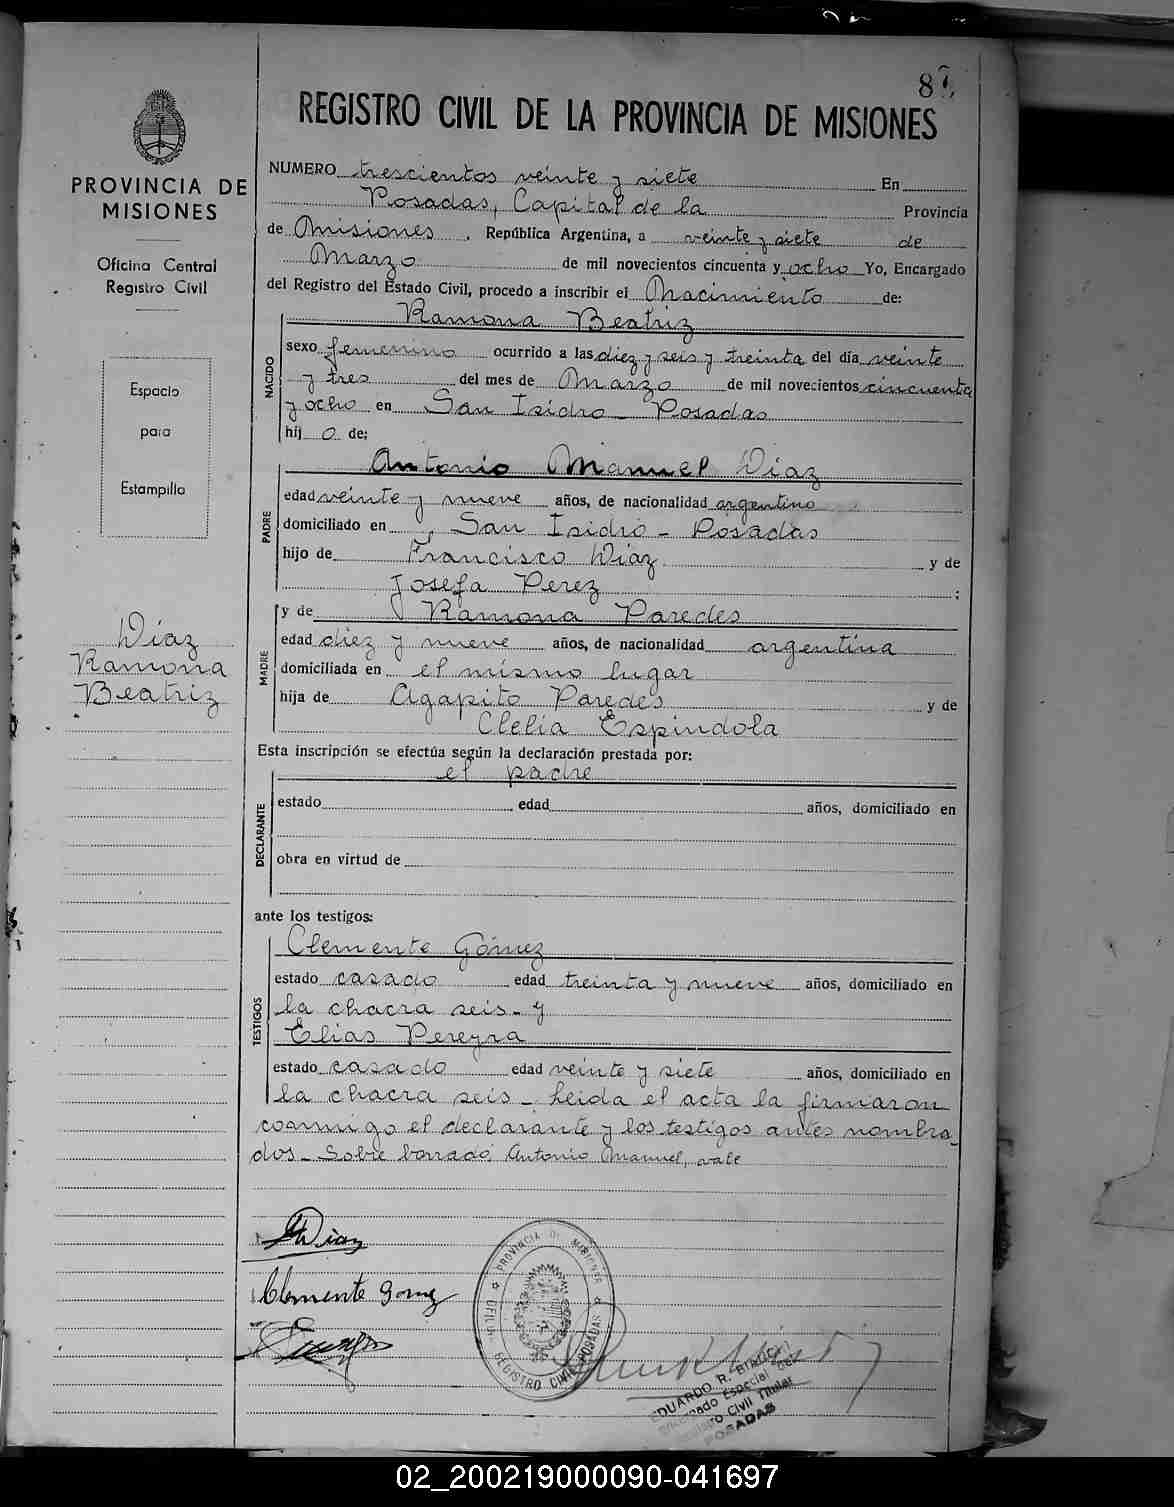 87
REGISTRO CIVIL DE LA PROVINCIA DE MISIONES
PROVINCIA DE
MISIONES
Oficina Central
Registro Civil
Espacio
para
Estampilla
Díaz
Ramona
Beatriz
NUMERO trescientos veinte y siete En
Posadas, Capital de la Provincia
de Misiones, República Argentina, a veinte y siete de
Marzo de mil novecientos cincuenta y ocho Yo, Encargado
del Registro del Estado Civil, procedo a inscribir el Nacimiento de:
NACIDO
Ramona Beatriz
sexo femenino ocurrido a las diez y seis y treinta del día veinte
y tres del mes de Marzo de mil novecientos cincuenta
y ocho en San Isidro - Posadas
hij a de:
PADRE
Antonio Manuel Díaz
edad veinte y nueve años, de nacionalidad argentino
domiciliado en San Isidro - Posadas
hijo de Francisco Díaz y de
Josefa Perez ;
MADRE
y de Ramona Paredes
edad diez y nueve años, de nacionalidad argentina
domiciliada en el mismo lugar
hija de Agapito Paredes y de
Clelia Espindola
Esta inscripción se efectúa según la declaración prestada por:
DECLARANTE
el padre
estado edad años, domiciliado en
obra en virtud de
ante los testigos:
TESTIGOS
Clemente Gómez
estado casado edad treinta y nueve años, domiciliado en
la chacra seis - y
Elias Pereyra
estado casado edad veinte y siete años, domiciliado en
la chacra seis - Leida el acta la firmaron
conmigo el declarante y los testigos antes nombra-
dos - Sobre borrado: Antonio Manuel, vale
Díaz
Clemente Gomez
PROVINCIA DE MISIONES
OFICINA REGISTRO CIVIL POSADAS
EDUARDO R.
Encargado Especial del
Registro Civil Titular
POSADAS
02_200219000090-041697